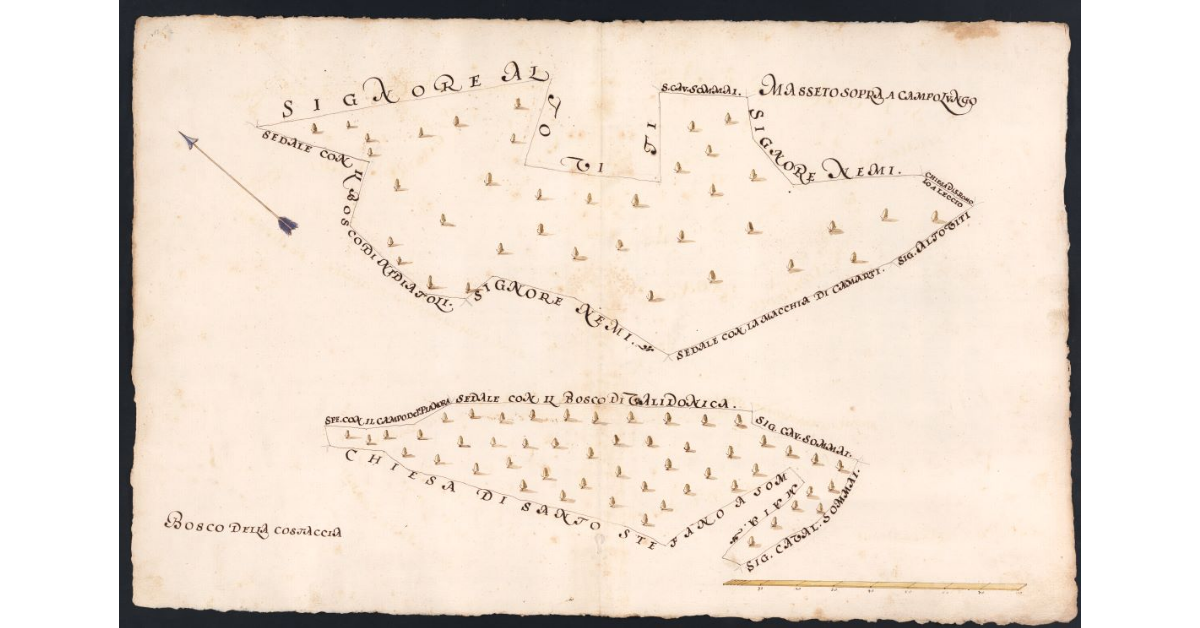 MASSETO SOPRA A CAMPO LUNGO
SIGNORE ALTOVITI
S. CAV. SOMMAI.
SIGNORE NEMI.
CHIESA DI S. ROMO
LO A LECCIO
SIG. ALTOVITI
SEDALE CON LA MACCHIA DI CAMARTI.
SIGNORE NEMI.
SEDALE CON IL BOSCO DI
SPE. CON IL CAMPO DEL
SEDALE CON IL BOSCO DI VALIDONICA.
SIG. CAV. SOMMAI.
SIG. CAVAL. SOMMAI.
CHIESA DI SANTO STEFANO A SOMMAIA.
BOSCO DELLA COSTACCIA